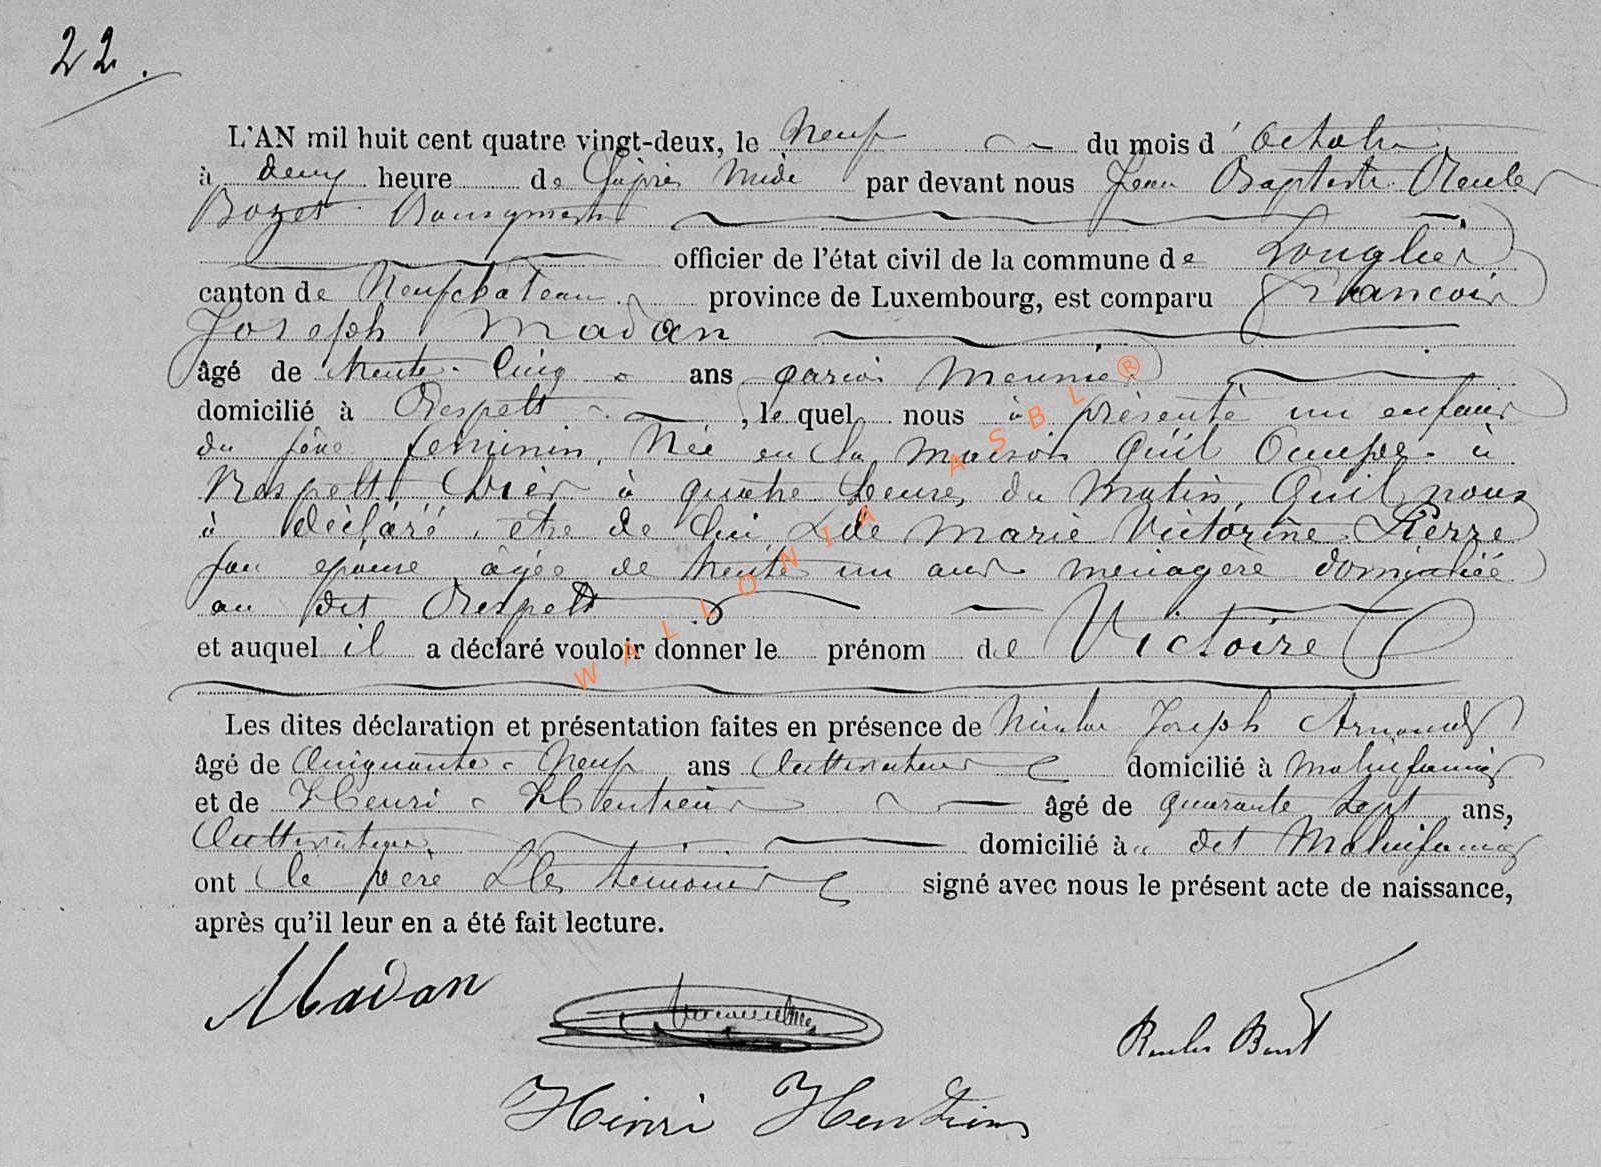 22.
L'AN mil huit cent quatre vingt-deux, le Neuf du mois d' Octobre
à deux heure de L'après Midi par devant nous Jean Baptiste Reuler
Bozet Bourgmestre
officier de l'état civil de la commune de Longlier
canton de Neufchâteau province de Luxembourg, est comparu François
Joseph Madan
âgé de trente-Cinq ans garçon Meunier
domicilié à Respelt, le quel nous à présenté un enfant
du sèxe feminin, Née en la maison Qu'il Occupe à
Respelt, hier à quatre heures du Matin, Qu'il nous
à déclaré, etre de Lui & de Marie Victorine Pierre
son epouse âgée de trente un ans menagère domiciliée
au dit Respelt
et auquel il a déclaré vouloir donner le prénom de Victoire
Les dites déclaration et présentation faites en présence de Nicolas Joseph Arnould
âgé de Cinquante-Neuf ans Cultivateur domicilié à Molinfaing
et de Henri Hentiens âgé de quarante Sept ans,
Cultivateur domicilié à u dit Molinfaing
ont le père & les temoins signé avec nous le présent acte de naissance,
après qu'il leur en a été fait lecture.
Madan
Reuler Bozet
Henri Hentiens
WALLONIA ASBL ®